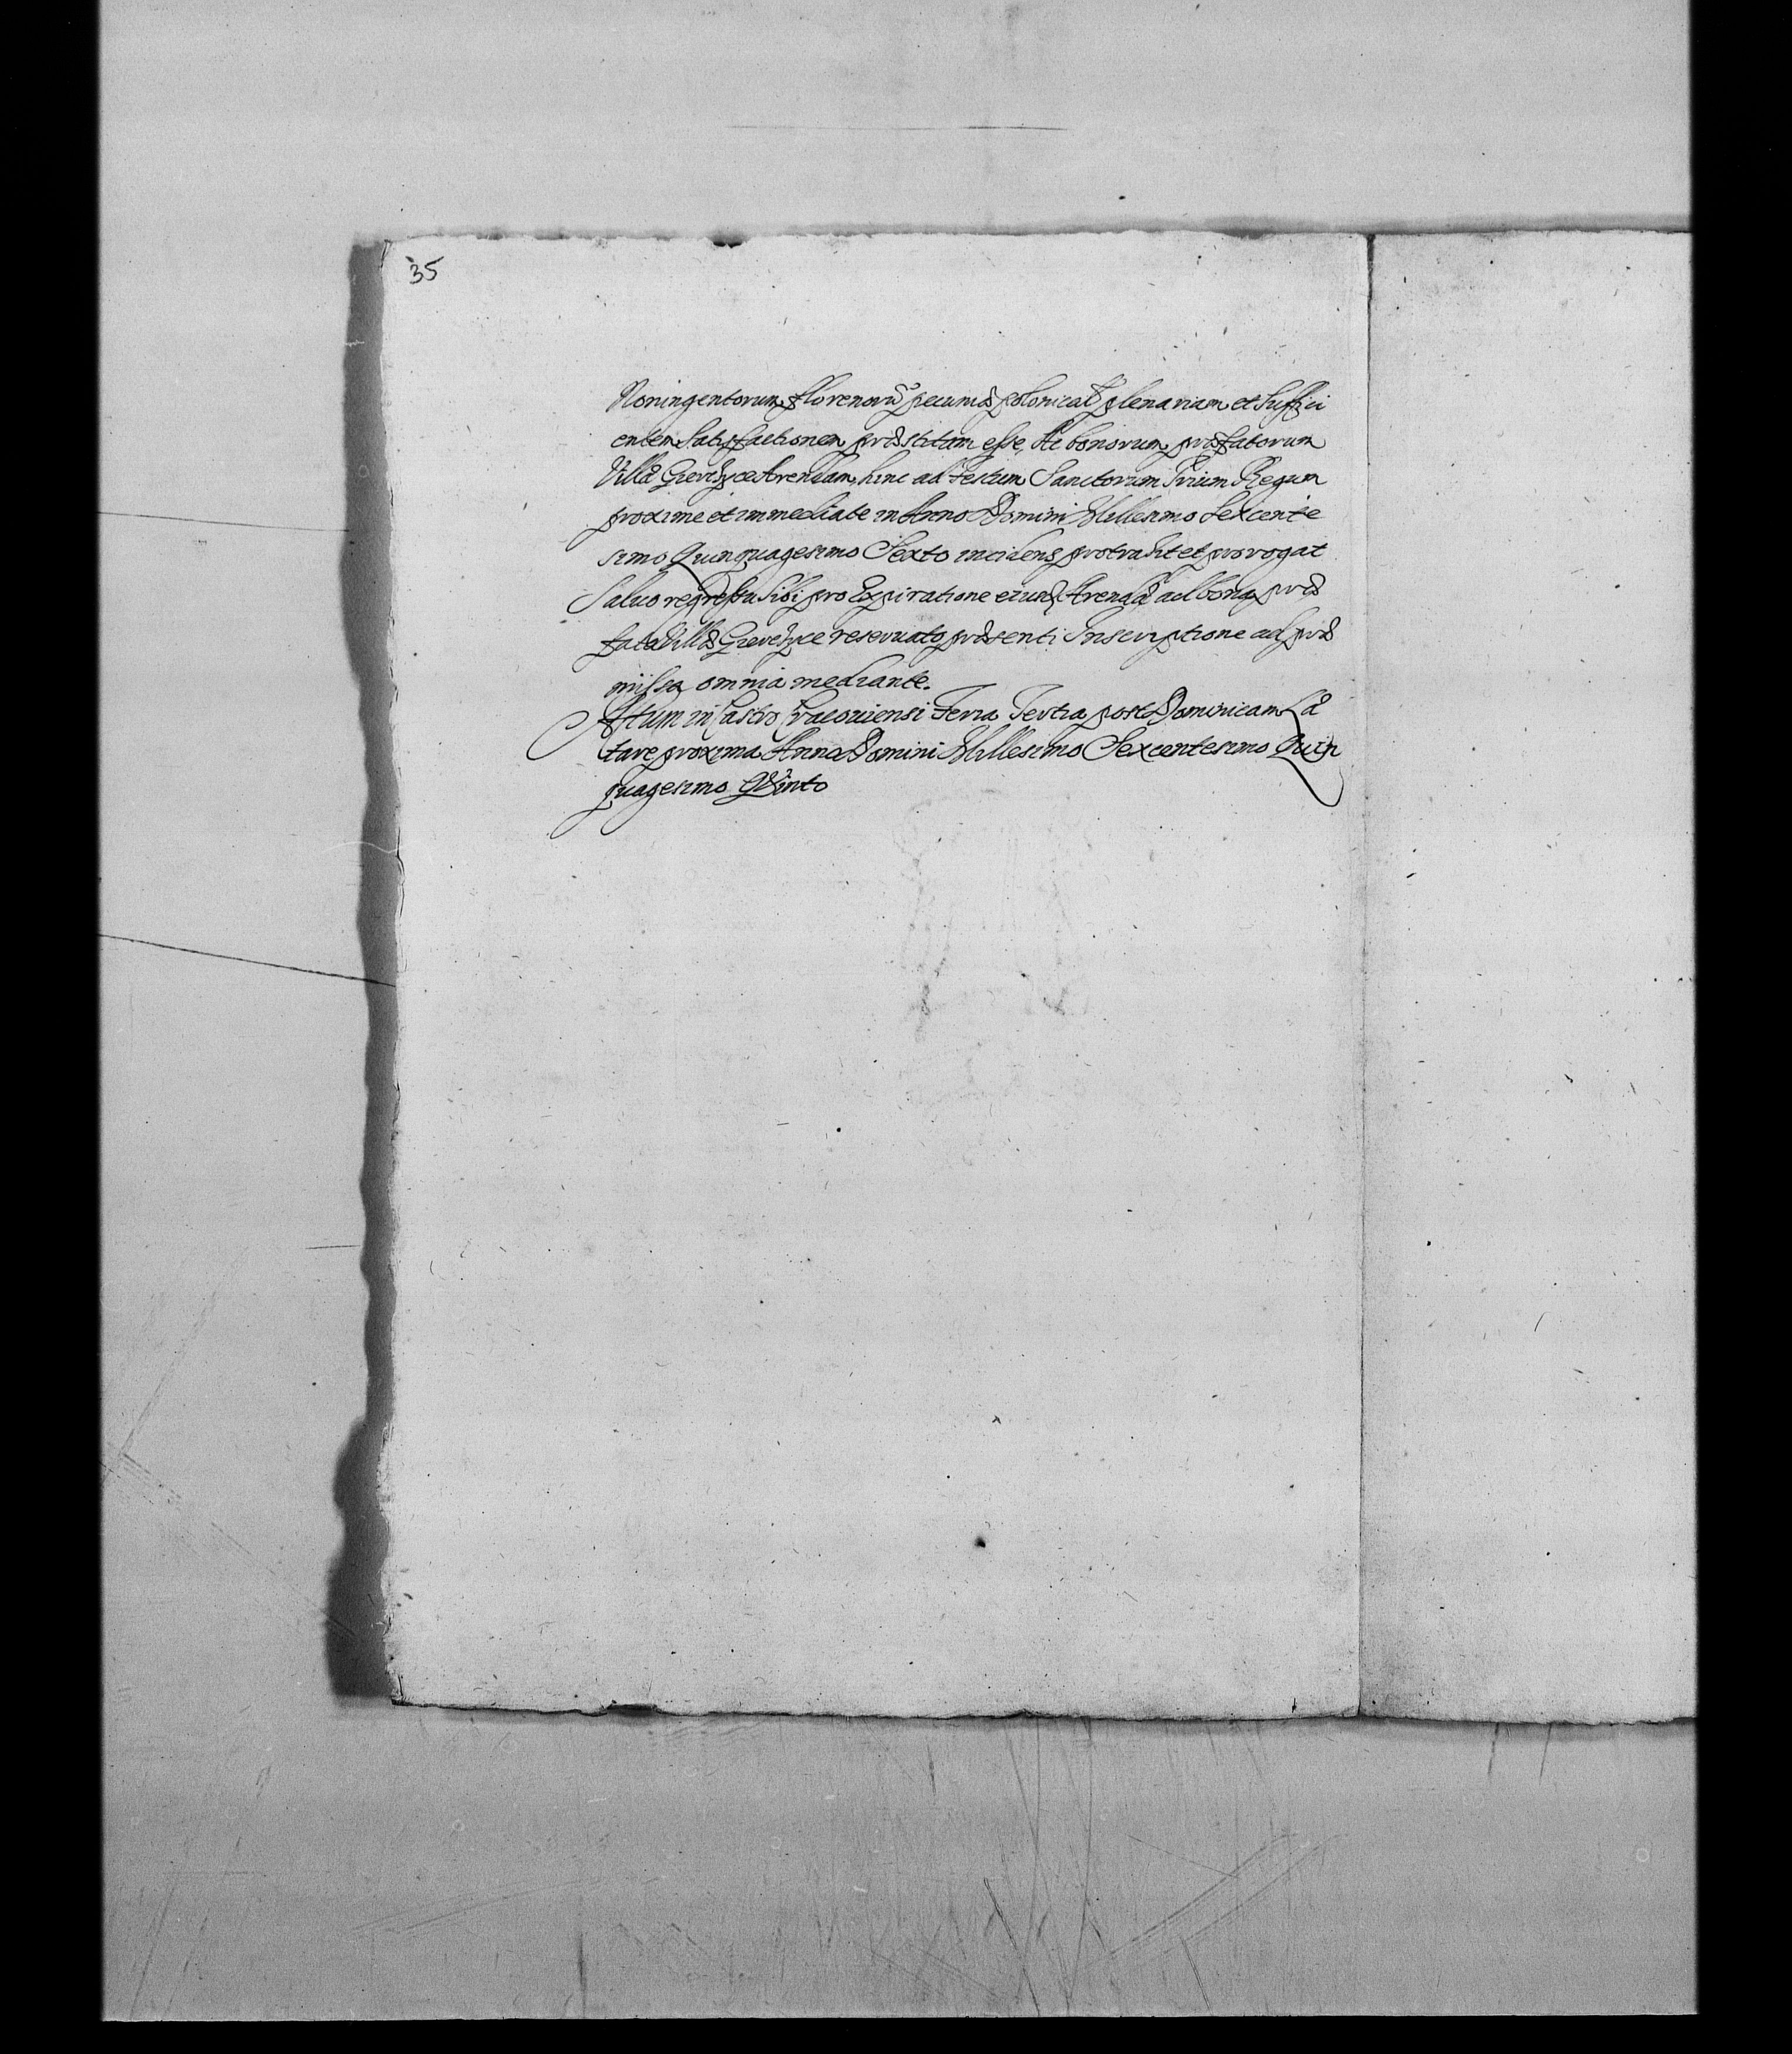 35
Noningentorum florenorũ pecuniæ polonicał plenariam et Suffici
entem Satisfactionem præstitam esse, Ac bonorum præfatorum
Villæ Arendam hinc ad Festum Sanctorum Trium Regum
proxime et immediate in Anno Domini Millesimo Sexcente
simo Quinquagesimo Sexto incidens protrahit et prorogat
Saluo regressu Sibi pro Expiratione eiusd Arendæ ad bona præ
fata Villæ reseruato præsenti Inscriptione ad præ
missa omnia mediante.
Actum in Castro Cracouiensi Feria Tertia post Dominicam Læ
tare proxima Anno Domini Millesimo Sexcentesimo Quin
quagesimo Quinto